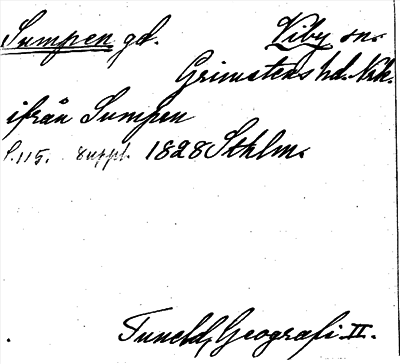 Sumpen gd. Viby sn.
Grimstens hd. Nrk.
ifrån Sumpen
S. 115. suppl. 1828 Sthlm.
Tuneld, Geografi II.